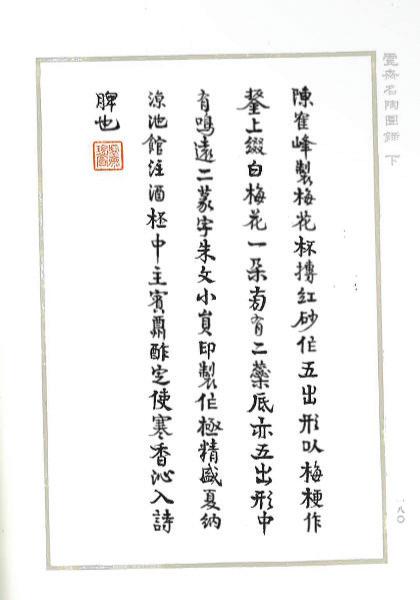 名陶圖錄 下
陳崔峰製梅花杯摶紅砂作五出形以梅梗作
鋬上綴白梅花一朵旁有二蘂底亦五出形中
有鳴遠二篆字朱文小員印製作極精盛夏納
涼池館注酒桮中主賓酬酢定使寒香沁入詩
脾也
一八〇